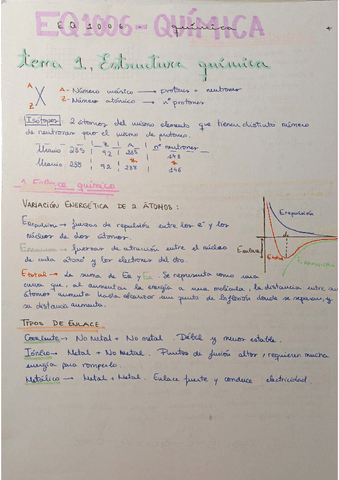 EQ1006 - QUÍMICA
EQ 1006 - química
tema 1. Estructura química
A
X
Z
A- Número másico → protones + neutrones
Z- Número atómico → nº protones
Isótopos: 2 átomos del mismo elemento que tienen distinto número
de neutrones pero el mismo de protones.
Z A nº neutrones
Uranio 235 92 235 143
Uranio 238 92 238 146
1. ENLACE QUÍMICO
VARIACIÓN ENERGÉTICA DE 2 ÁTOMOS:
Erepulsión → fuerzas de repulsión entre los e⁻ y los
núcleos de dos átomos.
→ fuerzas de atracción entre el núcleo
de cada átomo y los electrones del otro.
Etotal → La suma de Ea y Er. Se representa como una
curva que, al aumentar la energía a una molécula, la distancia entre sus
átomos aumenta hasta alcanzar un punto de inflexión donde se separan, y
su distancia aumenta.
Erepulsión
Eenlace
Etotal
TIPOS DE ENLACE
Covalente → No Metal + No metal. Débil y menos estable.
Iónico → Metal + No metal. Puntos de fusión altos, requieren mucha
energía para romperlo.
Metálico → Metal + Metal. Enlace fuerte y conduce electricidad.